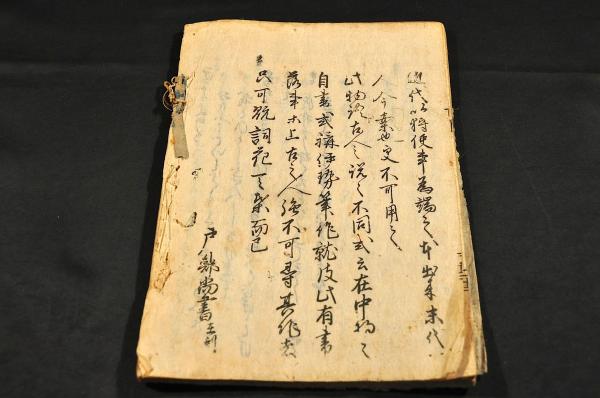 近代以狩使事為端之本出来末代之
人今案也更不可用之
此物語古人之説々不同或云在中将之
自書或称伊勢筆作就彼此有書
落事等上古之人強不可尋其作者
只可翫詞花言葉而已
戸部尚書在判